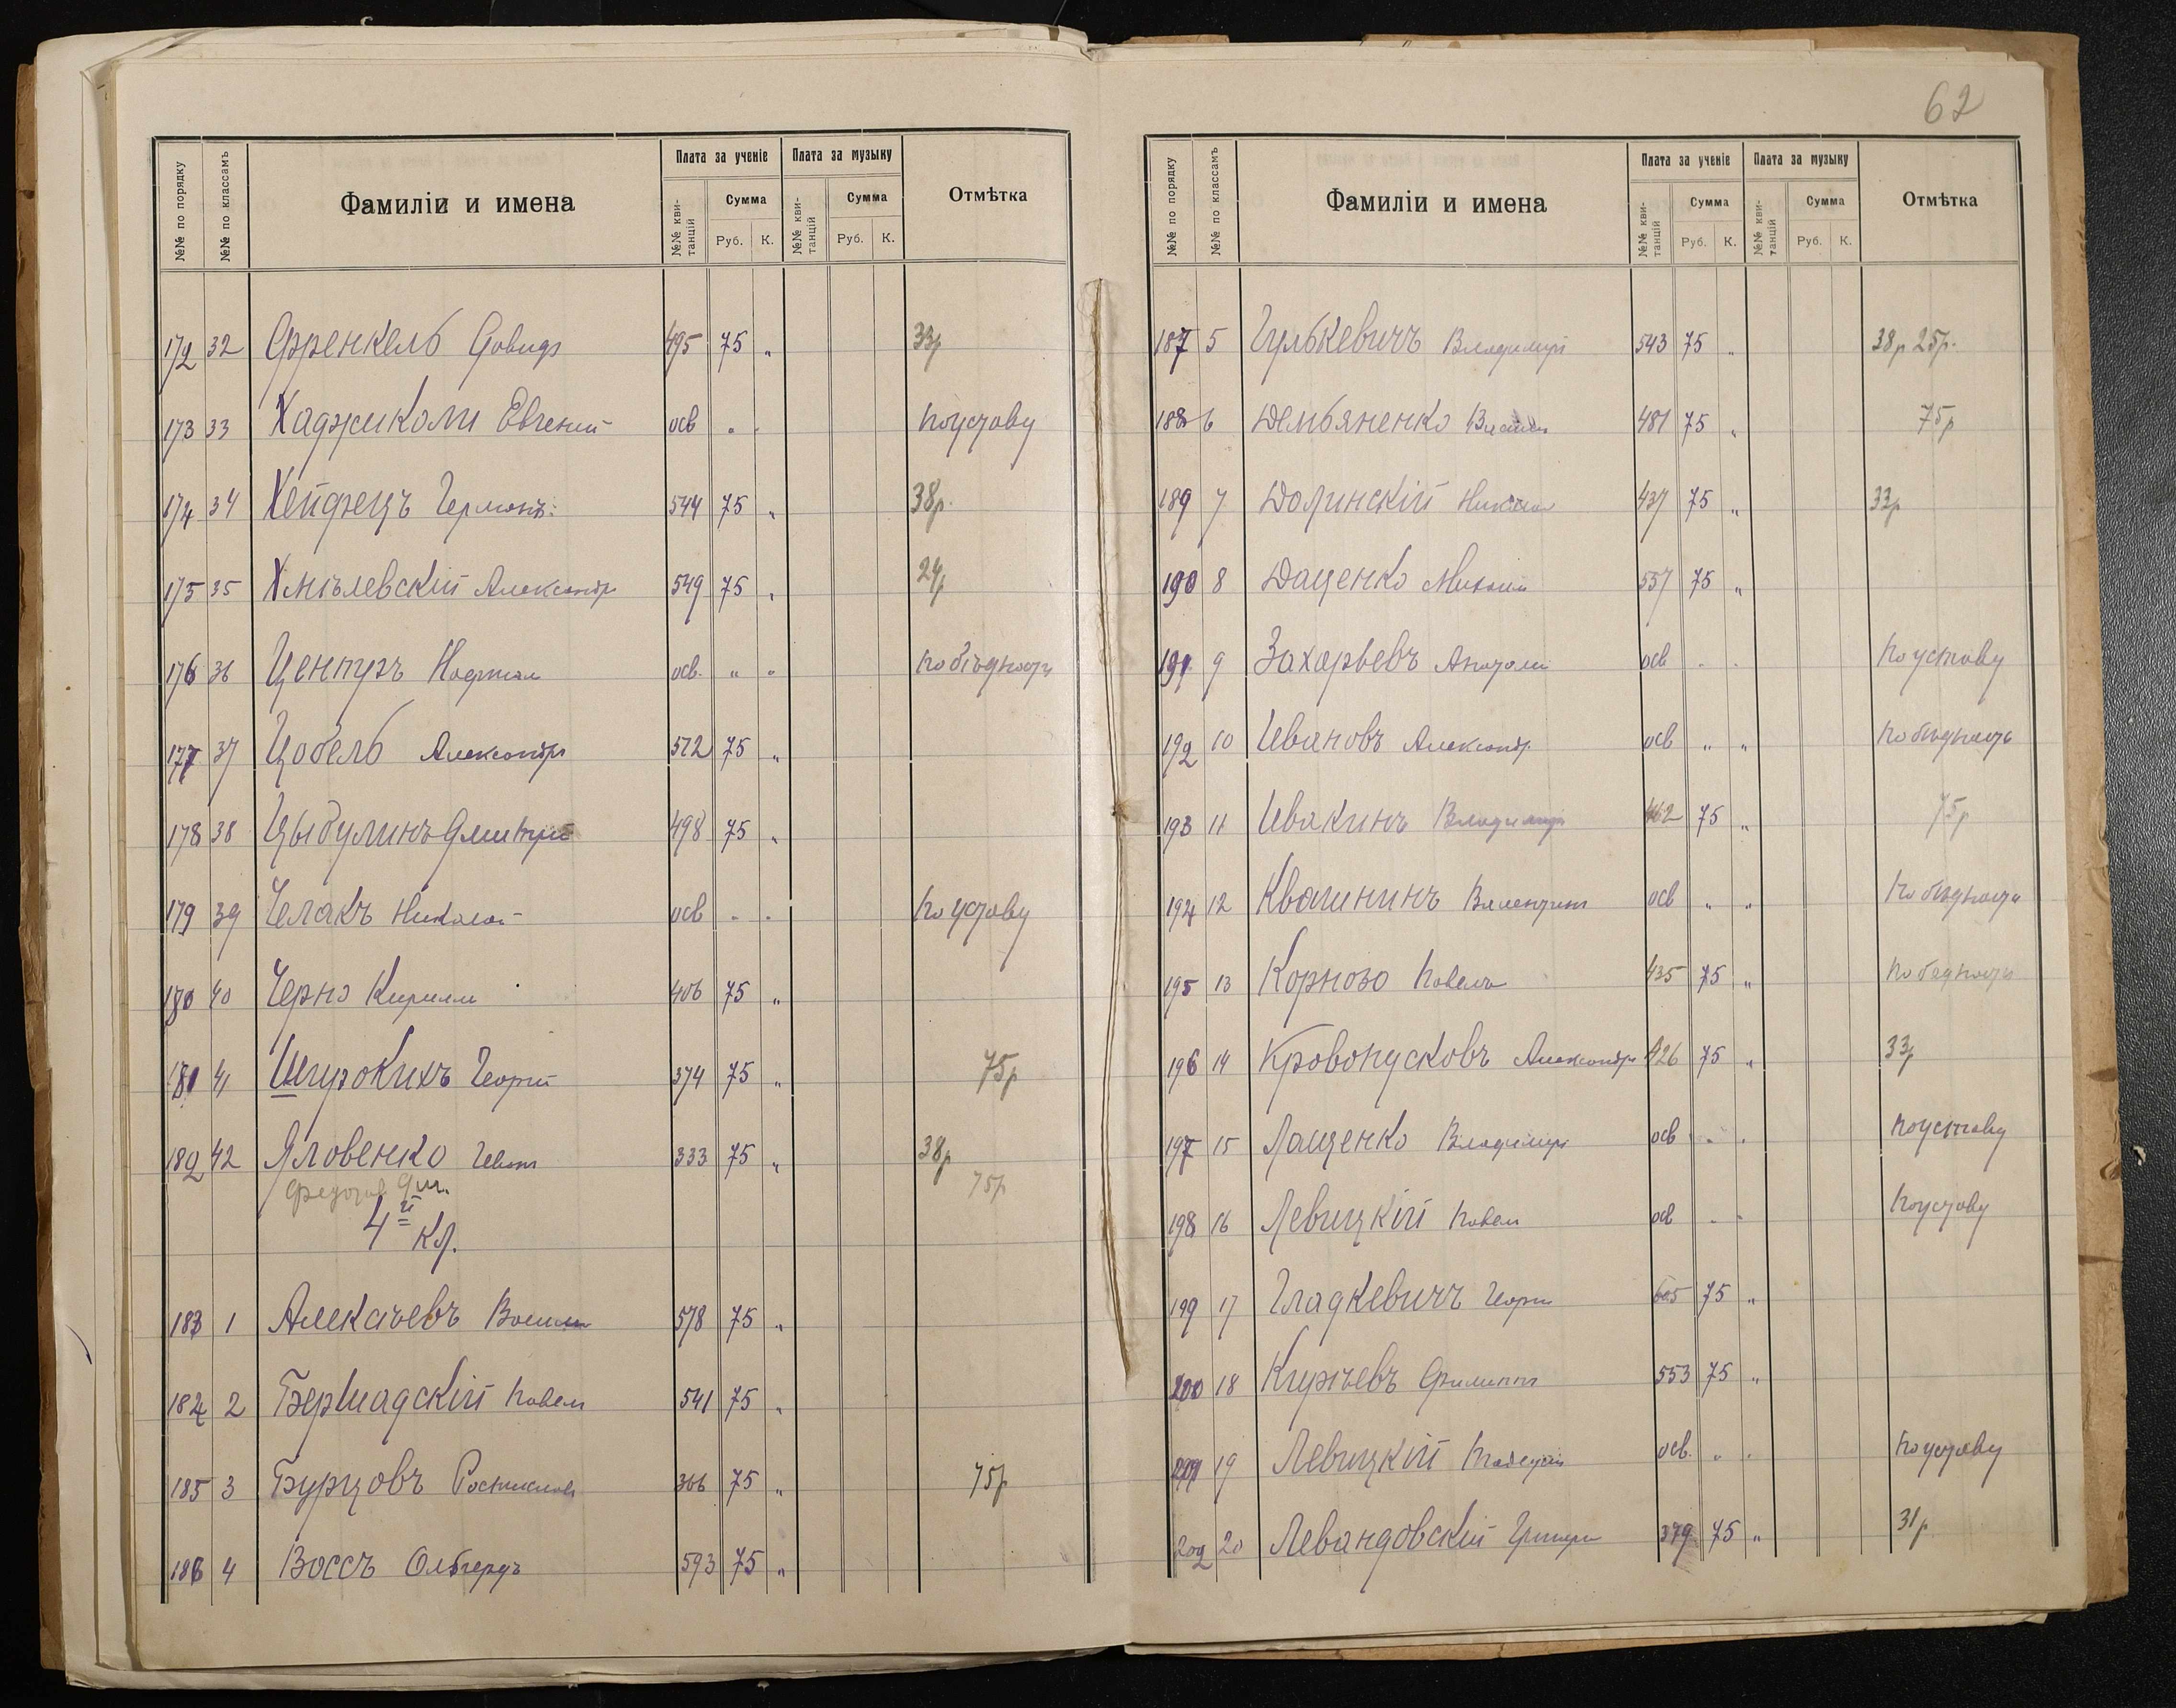 62
№№ по порядку №№ по классамъ Фамиліи и имена Плата за ученіе Плата за музыку Отмѣтка
№№ кви-танцій Сумма №№ кви-танцій Сумма
Руб. К. Руб. К.
172 32 Френкель Давидъ 495 75 „ 33р
173 33 Хаджиколи Евгеній осв „ „ по уставу
174 34 Хейфецъ Германъ 544 75 „ 38р.
175 35 Хмѣлевскій Александръ 549 75 „ 24р
176 36 Центръ осв. „ „ по бѣдности
177 37 Цобель Александръ 522 75 „
178 38 Цыбулинъ Дмитрій 498 75 „
179 39 Челакъ Николай осв „ „ по уставу
180 40 Черно Кириллъ 406 75 „
181 41 Широкихъ Георгій 374 75 „ 75р
182 42 Яловенко Иванъ 333 75 „ 38р
75р
4й кл.
183 1 Алекаевъ 578 75 „
184 2 Бершадскій Павелъ 541 75 „
185 3 Бурцовъ Ростиславъ 366 75 „ 75р
186 4 Воссъ Ольгердъ 593 75 „
№№ по порядку №№ по классамъ Фамиліи и имена Плата за ученіе Плата за музыку Отмѣтка
№№ кви-танцій Сумма №№ кви-танцій Сумма
Руб. К. Руб. К.
187 5 Гулькевичъ Владимиръ 543 75 „ 38р 25р.
188 6 Демьяненко 481 75 „ 75р
189 7 Долинскій Николай 437 75 „ 33р
190 8 Даценко Михаилъ 557 75 „
191 9 Захарьевъ Анатолій осв „ „ по уставу
192 10 Ивановъ Александръ осв „ „ по бѣдности
193 11 Ивакинъ Владимиръ 462 75 „ 75р
194 12 Квашнинъ Валентинъ осв „ „ по бѣдности
195 13 Корнозо Павелъ 435 75 „ по бедности
196 14 Кровопусковъ Александръ 426 75 „ 33р
197 15 Лащенко Владимиръ осв „ „ по уставу
198 16 Левицкій Павелъ осв „ „ по уставу
199 17 Гладкевичъ Георгій 605 75 „
200 18 Филиппъ 553 75 „
201 19 Левицкій осв. „ „ по уставу
202 20 Левандовскій Григорій 379 75 „ 31р